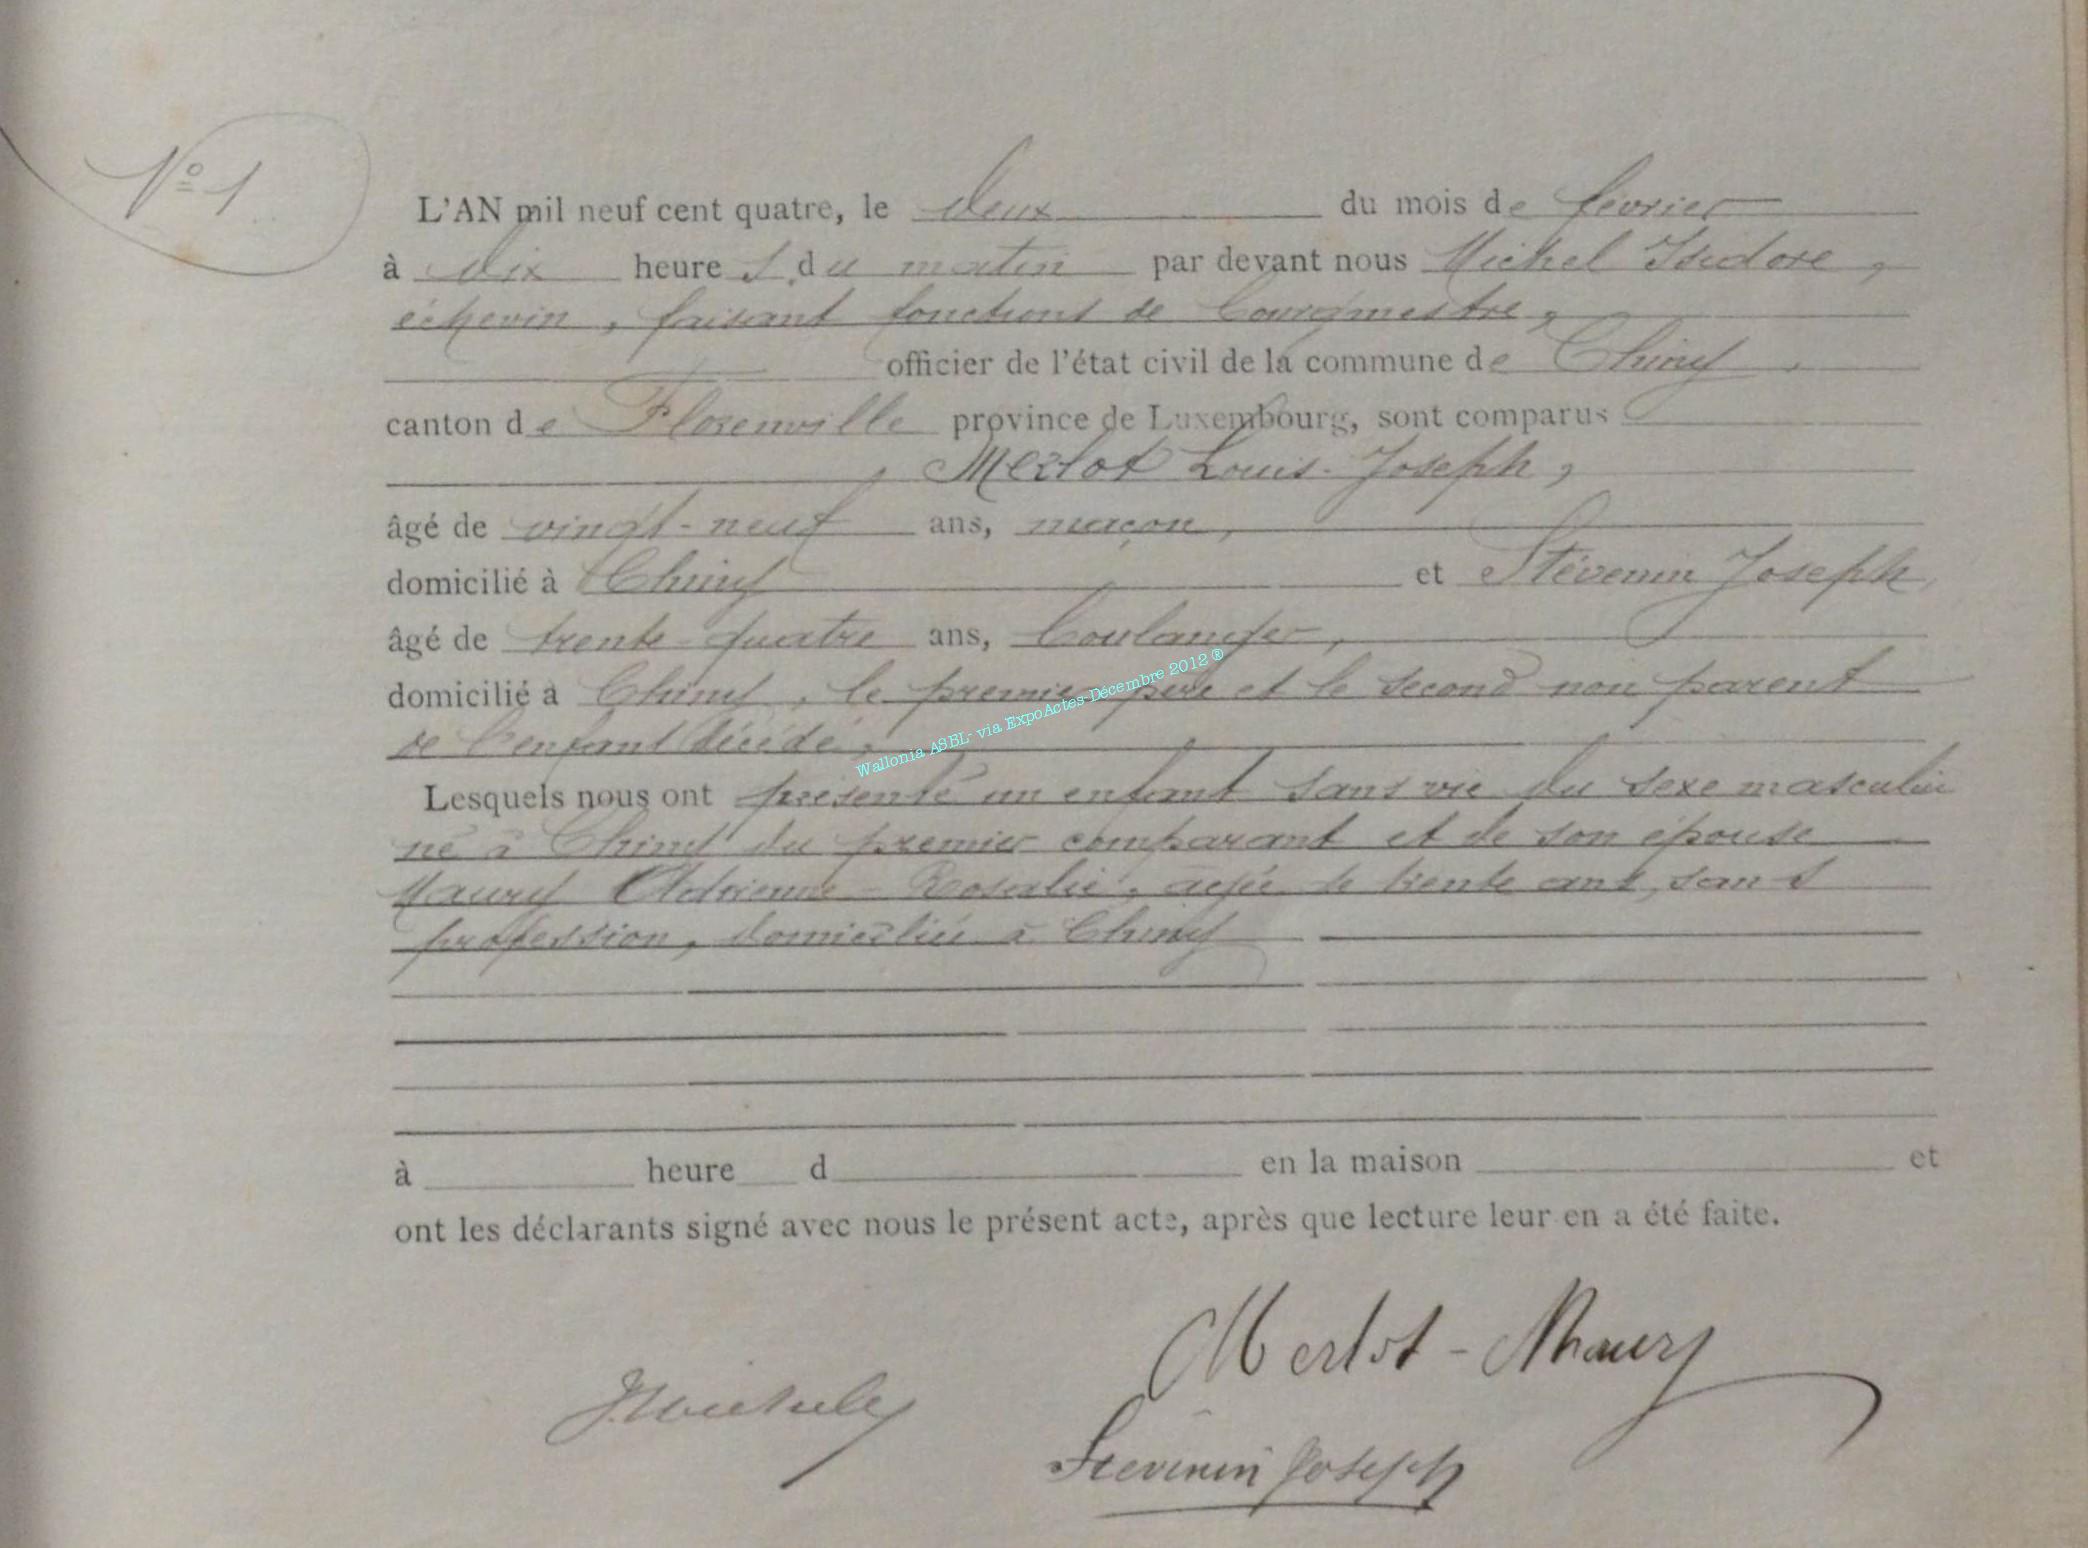 N° 1
L'AN mil neuf cent quatre, le deux du mois de février
à dix heures du matin par devant nous Michel Isidore,
échevin, faisant fonctions de bourgmestre,
officier de l'état civil de la commune de Chiny,
canton de Florenville province de Luxembourg, sont comparus
Merlot Louis-Joseph,
âgé de vingt-neuf ans, maçon,
domicilié à Chiny et Stévenin Joseph,
âgé de trente-quatre ans, boulanger,
domicilié à Chiny, le premier père et le second non parent
de l'enfant décédé,
Wallonia ASBL- via ExpoActes-Décembre 2012 ®
Lesquels nous ont présenté un enfant sans vie du sexe masculin
né à Chiny du premier comparant et de son épouse
Maury Adrienne-Rosalie, agée de trente ans, sans
profession, domiciliée à Chiny
à heure d en la maison et
ont les déclarants signé avec nous le présent acte, après que lecture leur en a été faite.
Merlot-Maury
Stévenin Joseph